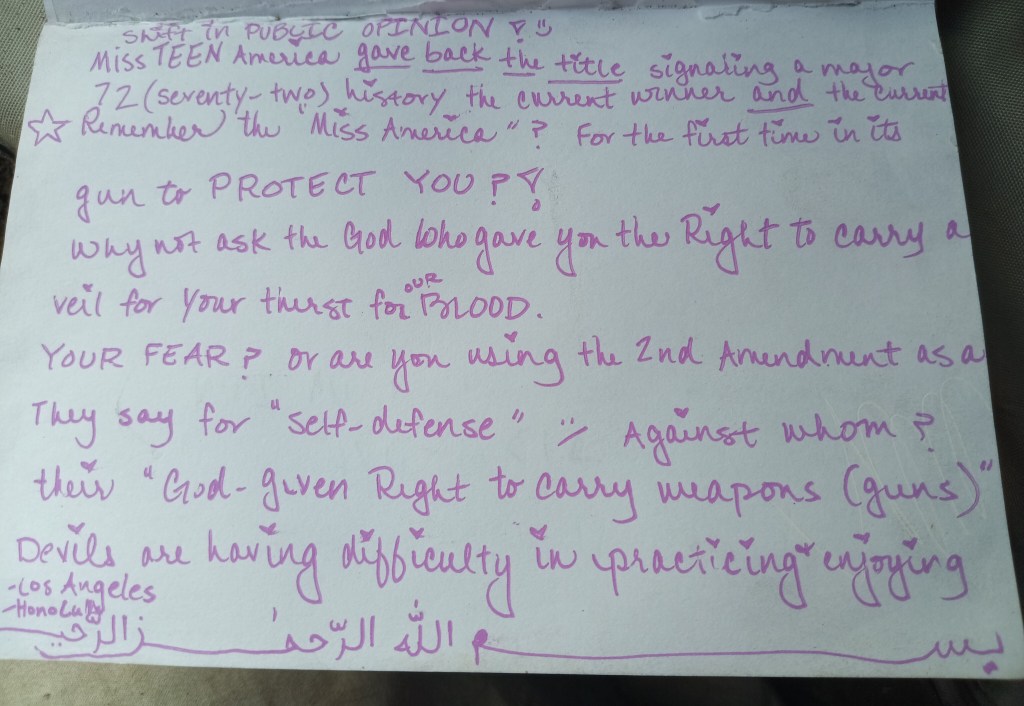 بسم الله الرّحمٰن الرّحيم
-Honolulu
-Los Angeles
Devils are having difficulty in practicing + enjoying
their "God-given Right to carry weapons (guns)"
They say for "self-defense" Against whom?
YOUR FEAR? or are you using the 2nd Amendment as a
veil for your thirst for OUR BLOOD.
why not ask the God who gave you the Right to carry a
gun to PROTECT YOU?!
☆ Remember the "Miss America"? For the first time in its
72 (seventy-two) history the current winner and the current
Miss TEEN America gave back the title signaling a major
shift in PUBLIC OPINION!